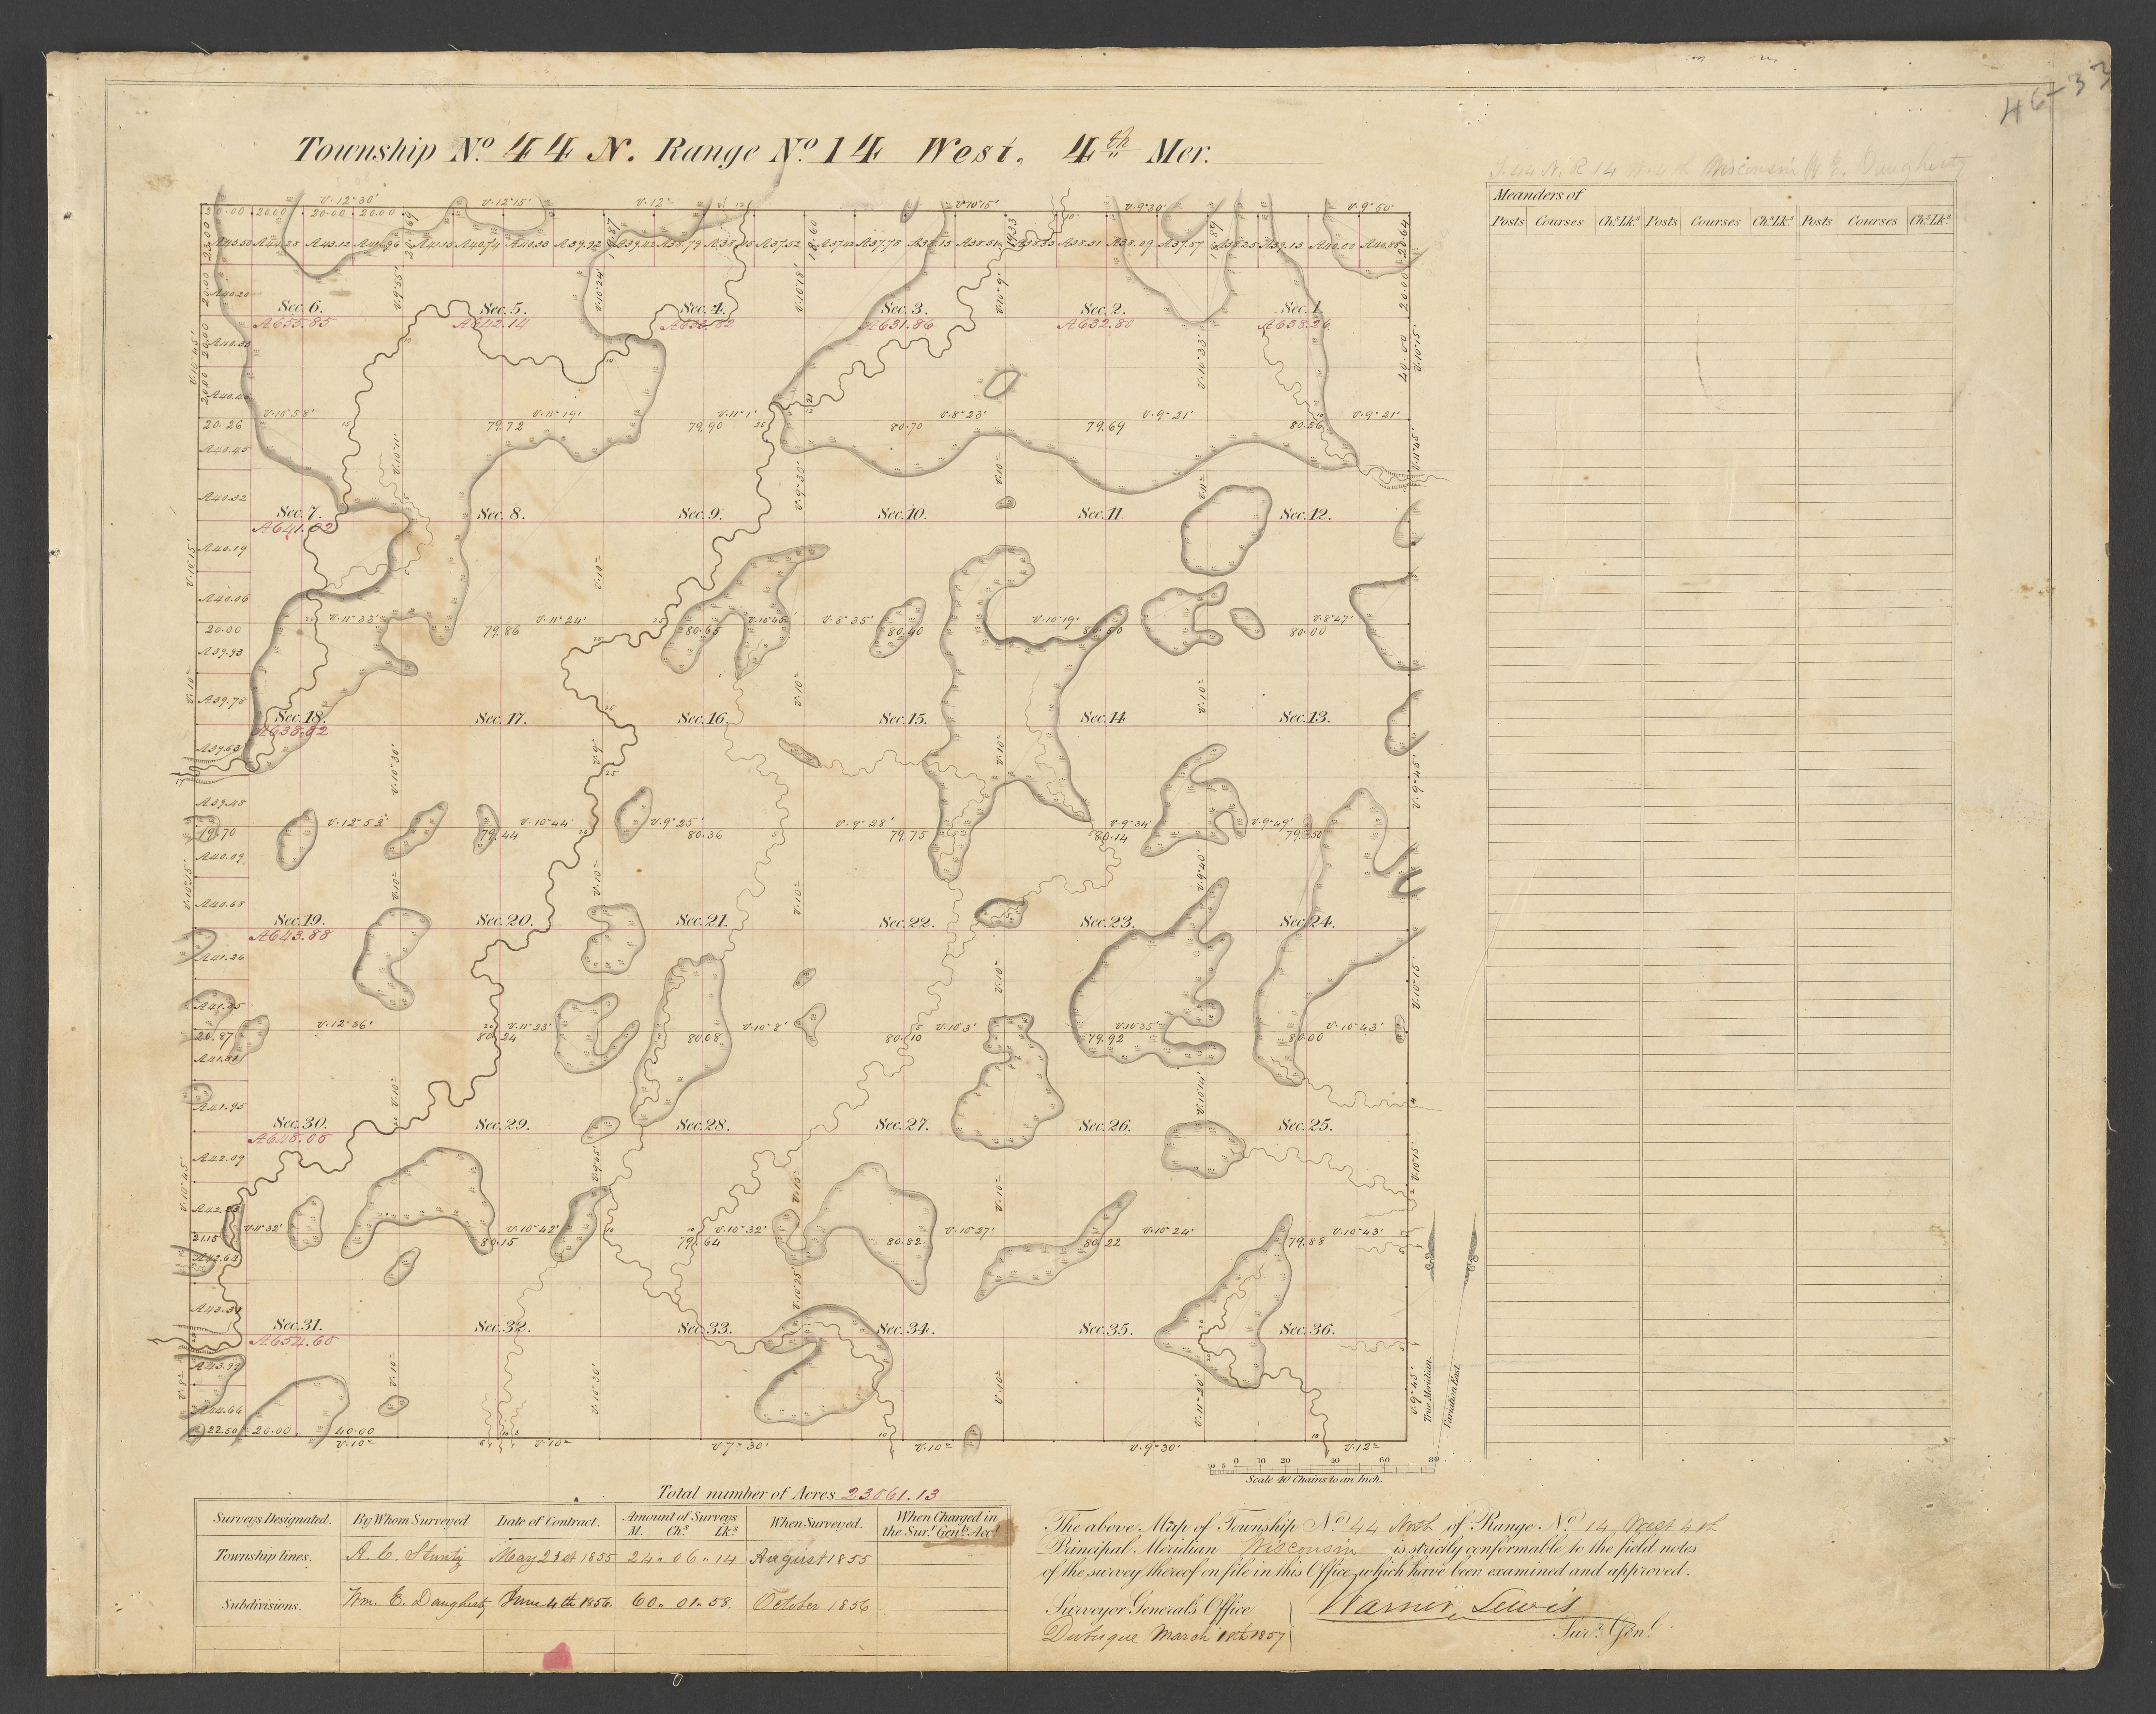 46-33
Township No. 44 N. Range No. 14 West, 4th Mer.
T. 44 N. R 14 W. 4th Wisconsin W. E. Daugherty
Meanders of
Posts Courses Chs Lks Posts Courses Chs Lks Posts Courses Chs Lks
V. 12° 30' V. 12° 15' V. 12° V. 10° 15' V. 9° 30' V. 9° 50'
20.00 20.00 20.00
A 43.12 A 40.74 A 39.92 A 37.52 A 37.78 A 38.31 A 38.09 A 37.57 A 39.13 A 40.00 A 40.88
Sec. 6. Sec. 5. Sec. 4. Sec. 3. Sec. 2. Sec. 1.
A 655.85 A 642.14 A 631.86 A 632.80 A 638.26
V. 10° 58' V. 11° 19' V. 11° 1' V. 8° 23' V. 9° 21' V. 9° 21'
20.26 79.72 79.90 80.70 79.69 80.56
A 40.45
A 40.32
Sec. 7. Sec. 8. Sec. 9. Sec. 10. Sec. 11 Sec. 12.
A 641.02
A 40.19
A 40.06
V. 11° 33' V. 11° 24' V. 10° 45' V. 8° 35' V. 10° 19' V. 8° 47'
20.00 79.86 80.65 80.40 80.00
A 39.93
A 39.78
Sec. 18. Sec. 17. Sec. 16. Sec. 15. Sec. 14 Sec. 13.
A 638.82
A 39.63
A 39.48
V. 12° 52' V. 10° 44' V. 9° 25' V. 9° 28' V. 9° 34' V. 9° 49'
19.70 79.44 80.36 79.75 80.14 79.50
A 40.09
A 40.68
Sec. 19. Sec. 20. Sec. 21. Sec. 22. Sec. 23. Sec. 24.
A 643.88
A 41.26
V. 12° 36' V. 11° 23' V. 10° 8' V. 10° 3' V. 10° 35' V. 10° 43'
20.87 80.24 80.08 80.10 79.92 80.00
A 41.95
Sec. 30. Sec. 29. Sec. 28. Sec. 27. Sec. 26. Sec. 25.
A 648.05
A 42.09
V. 11° 32' V. 10° 42' V. 10° 32' V. 10° 27' V. 10° 24' V. 10° 43'
21.15 80.15 79.64 80.82 80.22 79.88
A 42.64
Sec. 31. Sec. 32. Sec. 33. Sec. 34. Sec. 35. Sec. 36.
A 654.60
A 44.66
22.50 20.00 40.00
V. 10° V. 10° V. 7° 30' V. 10° V. 9° 30' V. 12°
True Meridian.
Variation East.
10 5 0 10 20 40 60 80
Scale 40 Chains to an Inch.
Total number of Acres 23061.13
Surveys Designated. By Whom Surveyed Date of Contract. Amount of Surveys When Surveyed. When Charged in
M. Chs Lks the Sur. Genls Acct
Township lines. A. C. Stuntz May 21st 1855 24 " 06 " 14 August 1855
Subdivisions. Wm. E. Daugherty June 4th 1856. 60 " 01 " 58. October 1856
The above Map of Township No. 44 North of Range No. 14 West 4th
Principal Meridian Wisconsin is strictly conformable to the field notes
of the survey thereof on file in this Office, which have been examined and approved.
Surveyor General's Office
Dubuque March 1857
Warner Lewis
Surv. Genl